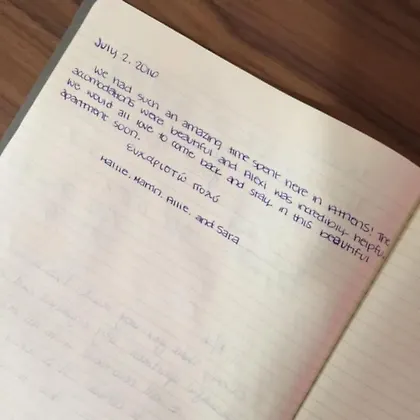 July 2, 2016
We had such an amazing time spent here in Athens! The
accomodations were beautiful and Alexi was incredibly helpful
We would all love to come back and stay in this beautiful
apartment soon.
ευχαριστώ πολύ
Hallie, Mann, Allie, and Sara